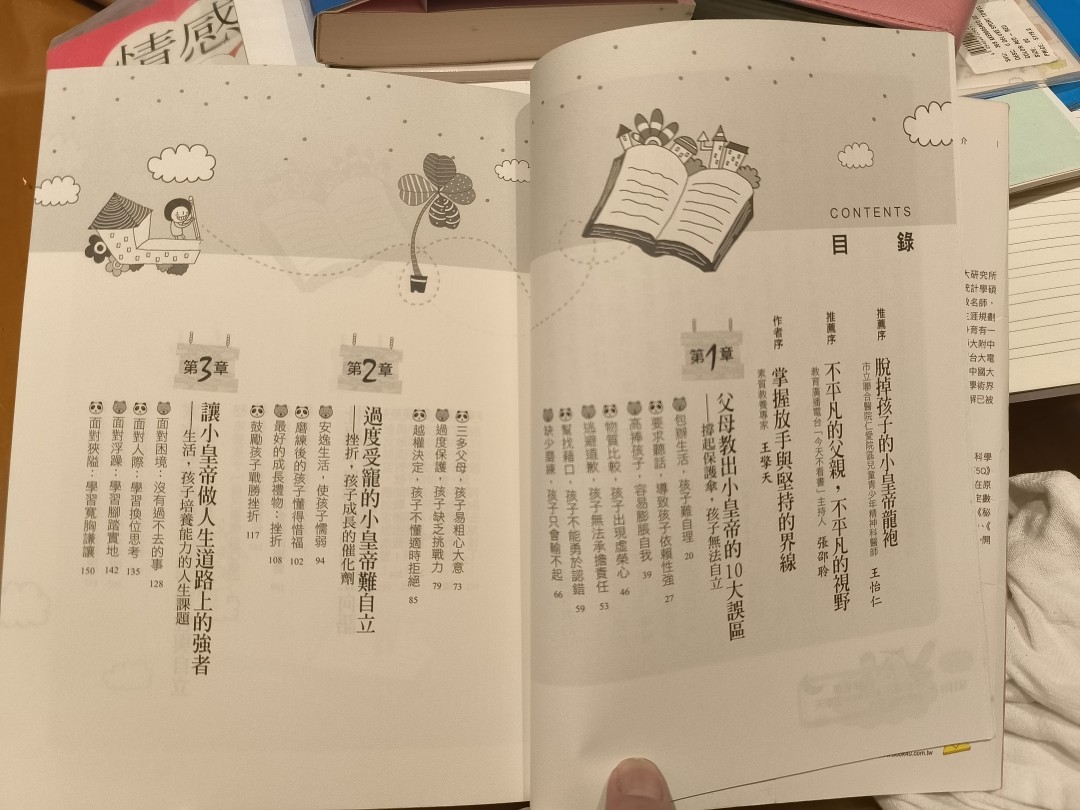 情感
CONTENTS
目錄
推薦序
脫掉孩子的小皇帝龍袍
市立聯合醫院仁愛院區兒童青少年精神科醫師 王怡仁
推薦序
不平凡的父親，不平凡的視野
教育廣播電台「今天不看書」主持人 張邵聆
作者序
掌握放手與堅持的界線
素質教養專家 王擎天
第1章
父母教出小皇帝的10大誤區
——撐起保護傘，孩子無法自立
包辦生活，孩子難自理 20
要求聽話，導致孩子依賴性強 27
高捧孩子，容易膨脹自我 39
物質比較，孩子出現虛榮心 46
逃避道歉，孩子無法承擔責任 53
幫找藉口，孩子不能勇於認錯 59
缺少磨練，孩子只會輸不起 66
三多父母，孩子易粗心大意 73
過度保護，孩子缺乏挑戰力 79
越權決定，孩子不懂適時拒絕 85
第2章
過度受寵的小皇帝難自立
——挫折，孩子成長的催化劑
安逸生活，使孩子懦弱 94
磨練後的孩子懂得惜福 102
最好的成長禮物：挫折 108
鼓勵孩子戰勝挫折 117
第3章
讓小皇帝做人生道路上的強者
——生活，孩子培養能力的人生課題
面對困境：沒有過不去的事 128
面對人際：學習換位思考 135
面對浮躁：學習腳踏實地 142
面對狹隘：學習寬胸謙讓 150